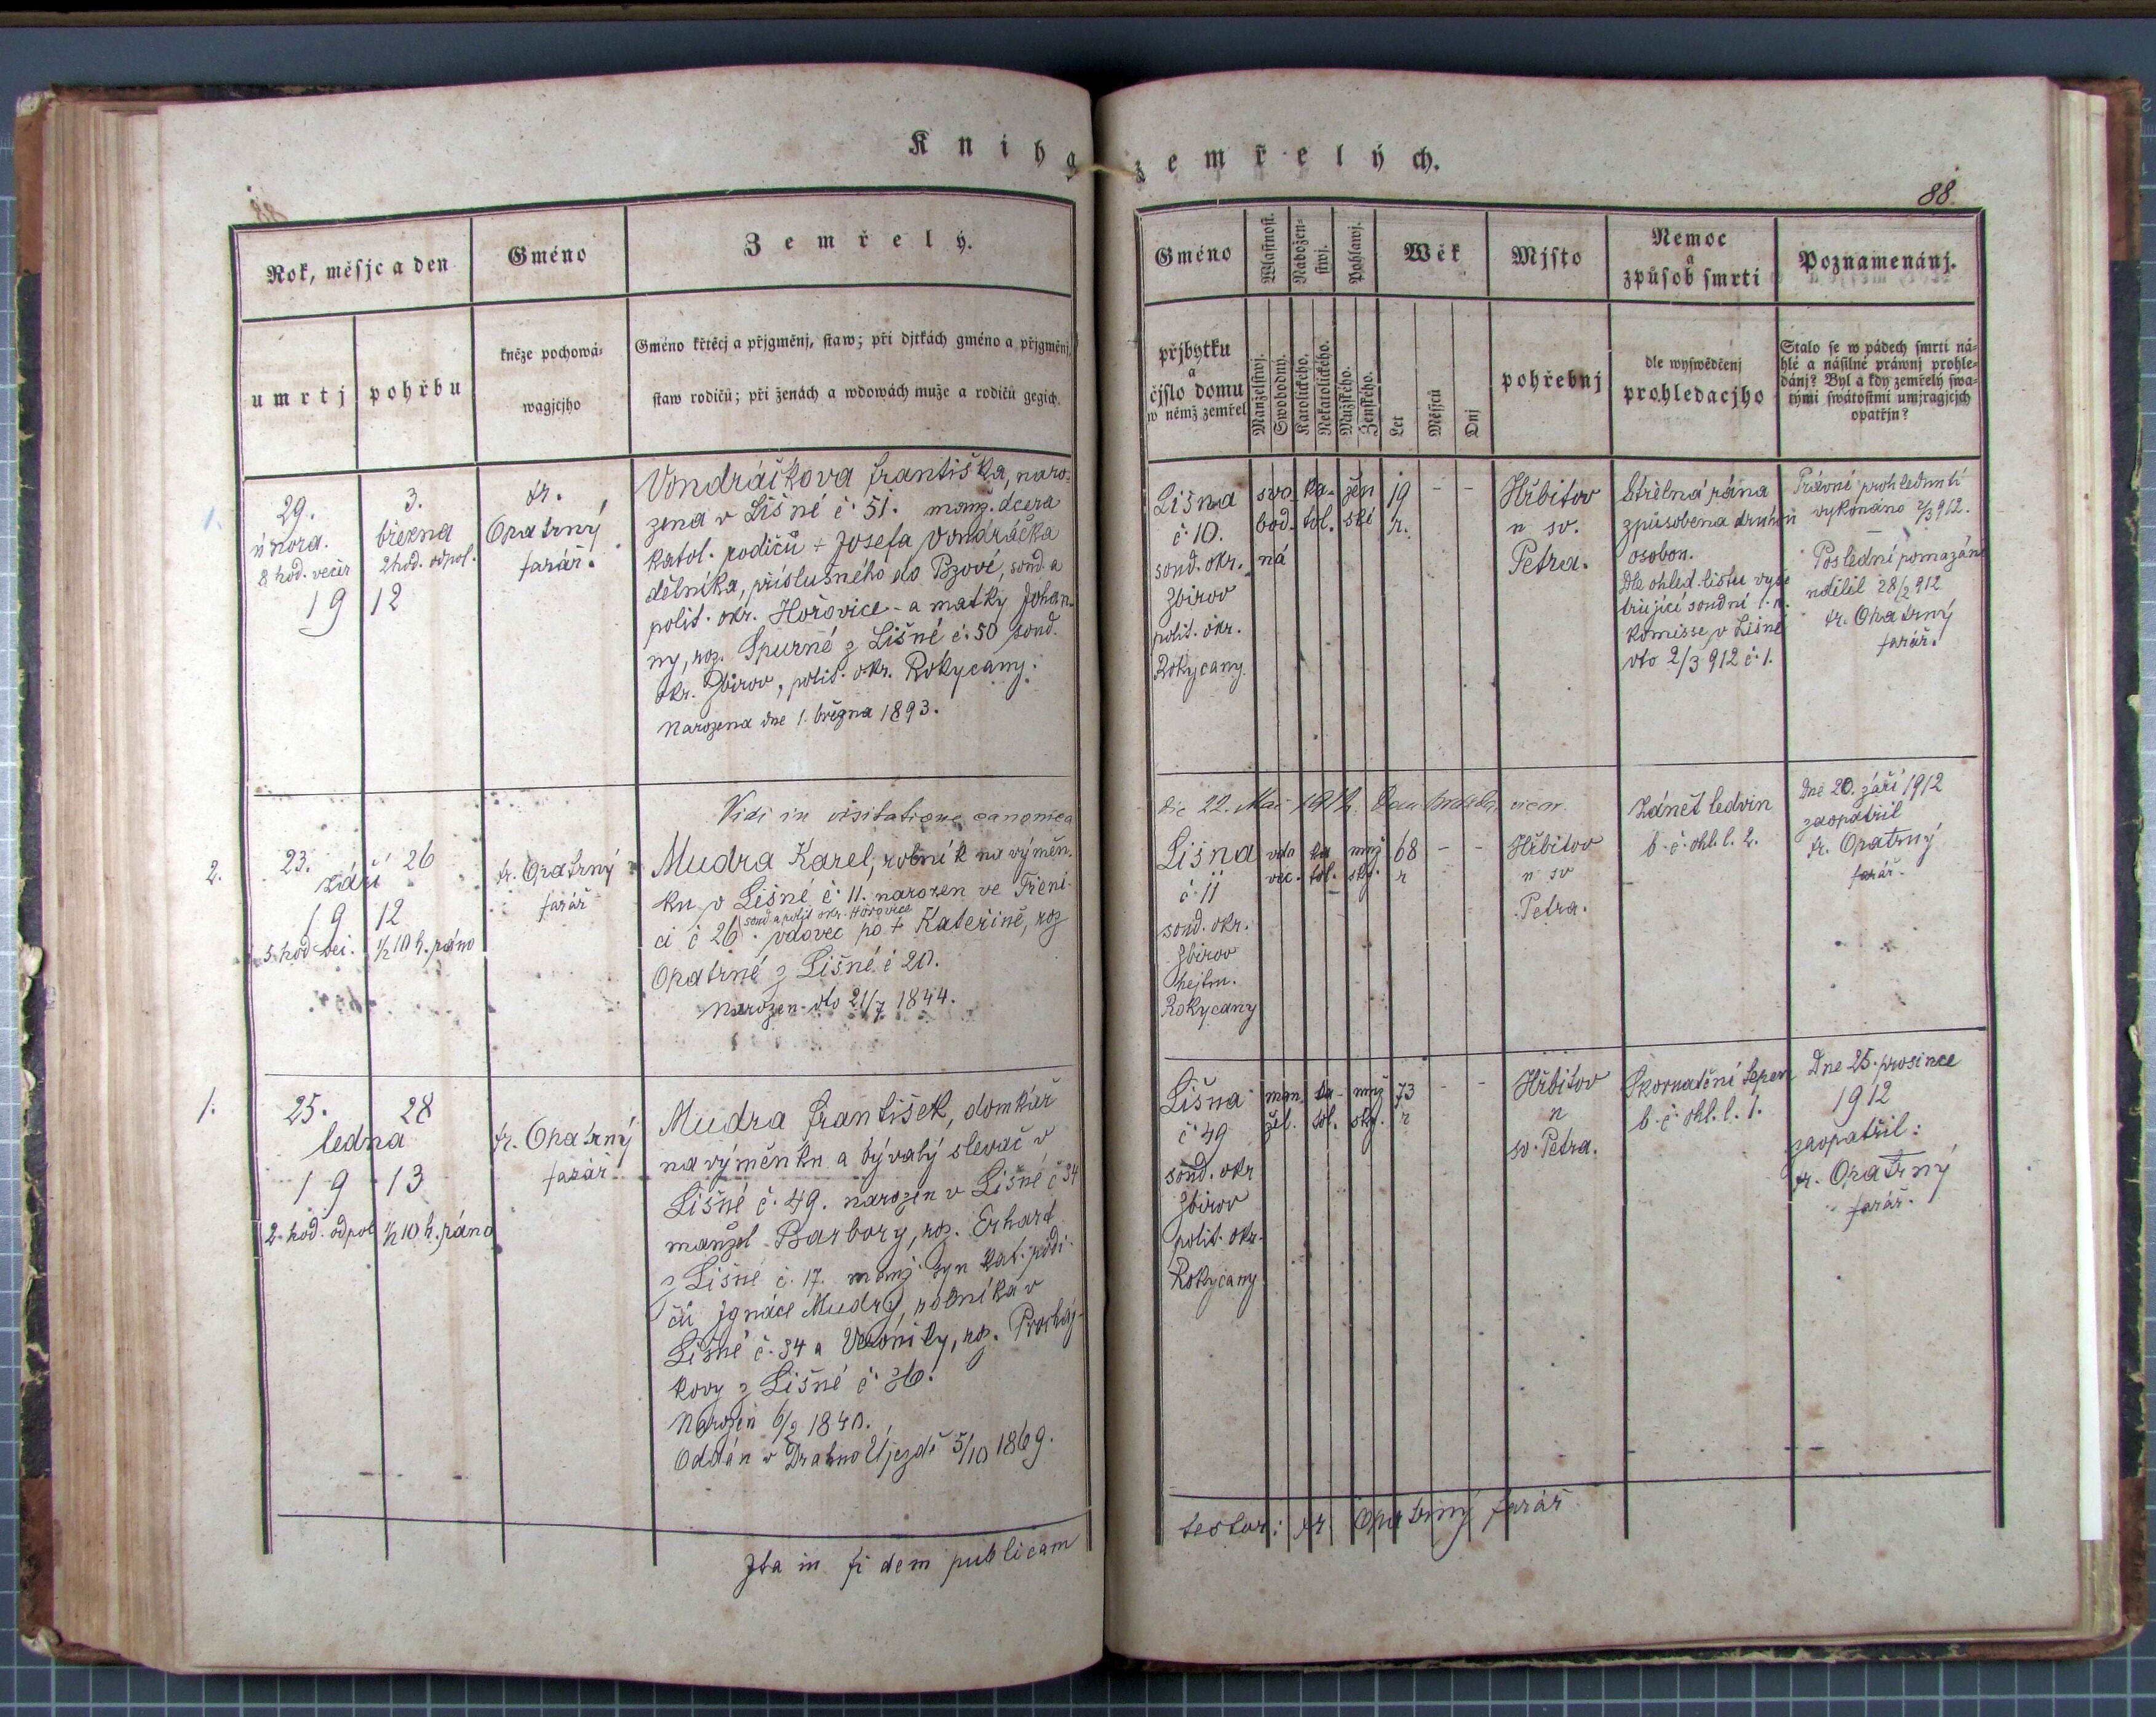 Kniha zemřelých.
88
88
Rok, měsjc a den
Gméno
Zemřelý.
umrtj
pohřbu
kněze pochowá-
wagjcjho
Gméno křtěcj a přjgménj, staw; při djtkách gméno a přjgménj,
staw rodičů; při ženách a wdowách muže a rodičů gegich.
Gméno
přjbytku
a
čjslo domu
w němž zemřel
Wlastnost.
Manželstwj.
Swobodnj.
Náboženstwj.
Katolického.
Nekatolického.
Pohlawj.
Mužského.
Ženského.
Wěk
Let
Měsjců
Dnj
Mjsto
pohřebnj
Nemoc
a
způsob smrti
dle wyswědčenj
prohledacjho
Poznamenánj.
Stalo se w pádech smrti ná-
hlé a násilné práwnj prohle-
dánj? Byl a kdy zemřelý swa-
tými swátostmi umjragjcjch
opatřjn?
1.
29.
února.
8 hod. večer
3.
března
2 hod. odpol.
19 12
Fr.
Opatrný
farář.
Vondráčkova Františka, naro-
zena v Lišné č. 51. manž. dcera
katol. rodičů + Josefa Vondráčka
dělníka, příslušného do Bzové, soud. a
polit. okr. Hořovice - a matky Johan-
ny, roz. Spurné z Lišné č. 50 soud.
okr. Zbirov, polit. okr. Rokycany.
Narozena dne 1. března 1893.
Lišna
č 10.
soud. okr.
Zbirov
polit. okr.
Rokycany.
svo-
bod-
ná
ka-
tol.
žen
ské
19
r.
- -
Hřbitov
u sv.
Petra.
Střelná rána
způsobena druhou
osobou.
Dle ohled. listu vyše
třující soudní
komisse v Lišné
dto 2/3 912 č 1.
Právní prohlednutí
vykonáno 2/3 912.
Poslední pomazání
udělil 28/2 912
Fr. Opatrný
farář.
Vidi in visitatione canonica
die 22. Mai 1912.
2.
23. září 26
19 12
5 hod več. 1/2 10 h. ráno
Fr. Opatrný
farář
Mudra Karel, rolník na výměn-
ku v Lišné č 11. narozen ve Třeni-
soud a polit okr. Hořovice
ci č 26 vdovec po + Kateřině, roz
Opatrné z Lišné č 20.
Narozen dto 21/7 1844.
Lišna
č 11
soud. okr.
Zbirov
hejtm.
Rokycany
vdo
vec.
ka
tol.
muž
ský.
68
r
- -
Hřbitov
u sv
Petra.
Zánět ledvin
b. č. ohl. l. 2.
Dne 20. září 1912
zaopatřil
Fr. Opatrný
farář.
1.
25. 28
ledna
19 13
2. hod. odpol 1/2 10 h. ráno
Fr. Opatrný
farář
Mudra František, domkář
na výměnku a bývalý slevač v
Lišné č. 49. narozen v Lišné č 34
manžel Barbory, roz. Erhart
z Lišné č. 17. manž. syn kat. rodi-
čů Ignáce Mudry, rolníka v
Lišné č. 34 a Veroniky, roz. Procház-
kovy z Lišné č 36.
Narozen 6/2 1840.
Oddán v Drahno Újezdě 5/10 1869.
Lišna
č 49
soud. okr
Zbirov
polit. okr.
Rokycany
man
žel.
ka-
tol.
muž
ský.
73
r
- -
Hřbitov
u
sv. Petra.
Skornatění tepen
b. č. ohl. l. 1.
Dne 25. prosince
1912
zaopatřil:
Fr. Opatrný
farář.
Ita in fidem publicam
testor: Fr. Opatrný farář